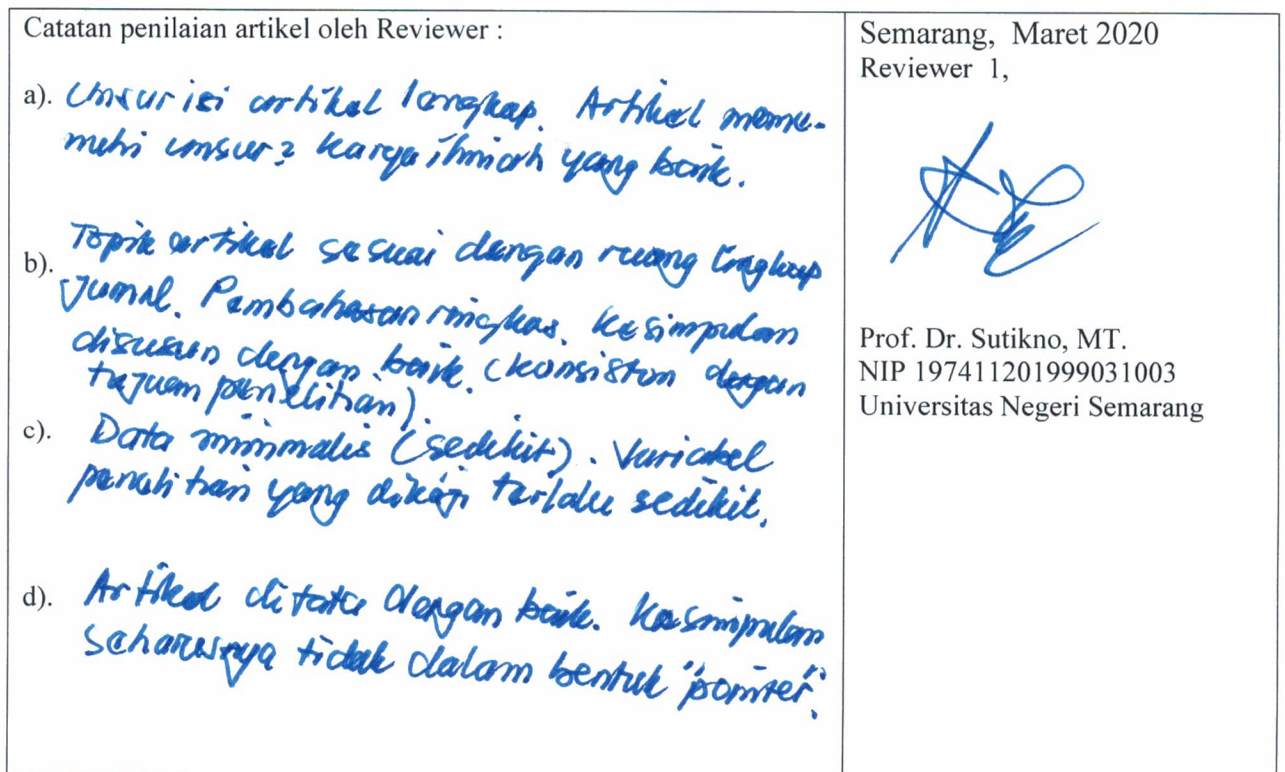 Catatan penilaian artikel oleh Reviewer :
a). Unsur isi artikel lengkap. Artikel meme-
nuhi unsur2 karya ilmiah yang baik.
b). Topik artikel sesuai dengan ruang lingkup
jurnal. Pembahasan ringkas. Kesimpulan
disusun dengan baik. (konsisten dengan
tujuan penelitian).
c). Data minimalis (sedikit). Variabel
penelitian yang dikaji terlalu sedikit.
d). Artikel ditata dengan baik. Kesimpulan
seharusnya tidak dalam bentuk "pointer".
Semarang, Maret 2020
Reviewer 1,
Prof. Dr. Sutikno, MT.
NIP 197411201999031003
Universitas Negeri Semarang